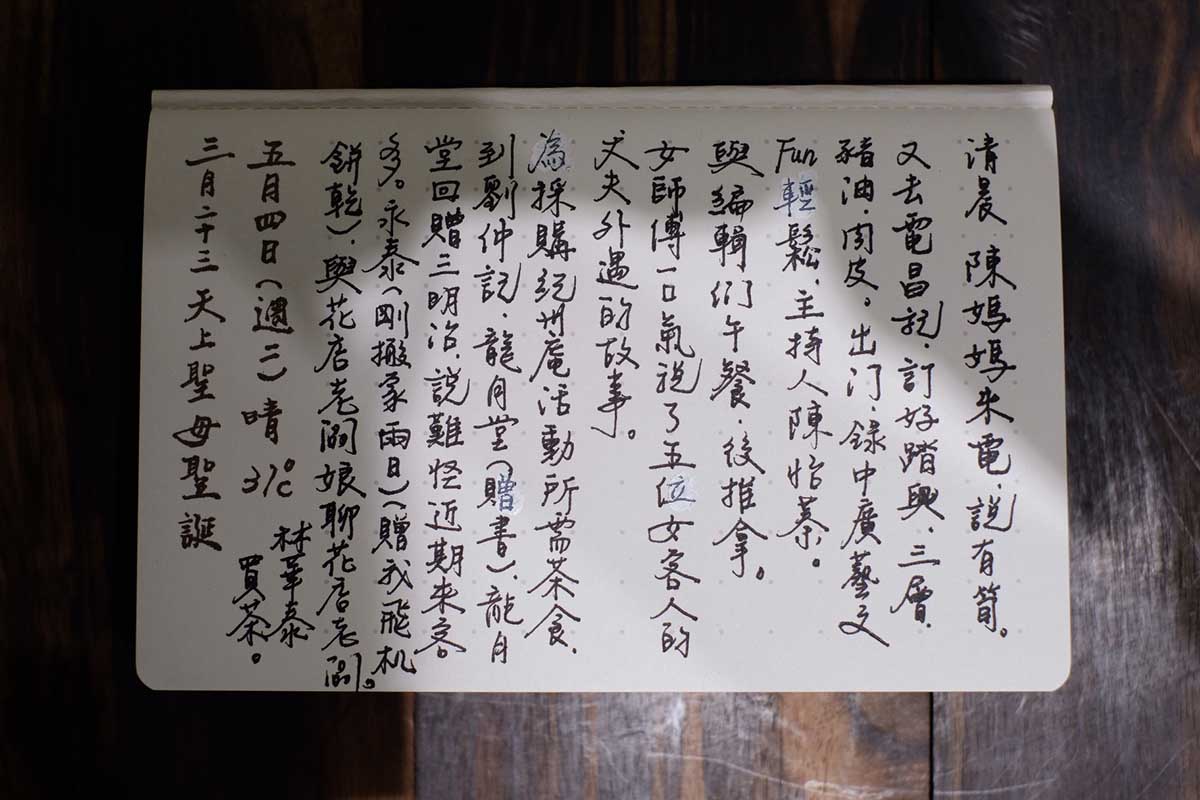 清晨 陳媽媽來電，說有筍。
又去電昌記，訂好踏輿、三層、
豬油、肉皮。出門，錄中廣藝文
Fun輕鬆，主持人陳怡蓁。
與編輯們午餐，後推拿。
女師傅一口氣說了五位女客人的
丈夫外遇的故事。
為採購紀州庵活動所需茶食，
到劉仲記、龍月堂（贈書），龍月
堂回贈三明治，說難怪近期來客
多。永泰（剛搬家兩日）（贈我飛机
餅乾），與花店老闆娘聊花店老闆。
五月四日（週二）晴 37℃
林華泰
買茶。
三月二十三天上聖母聖誕